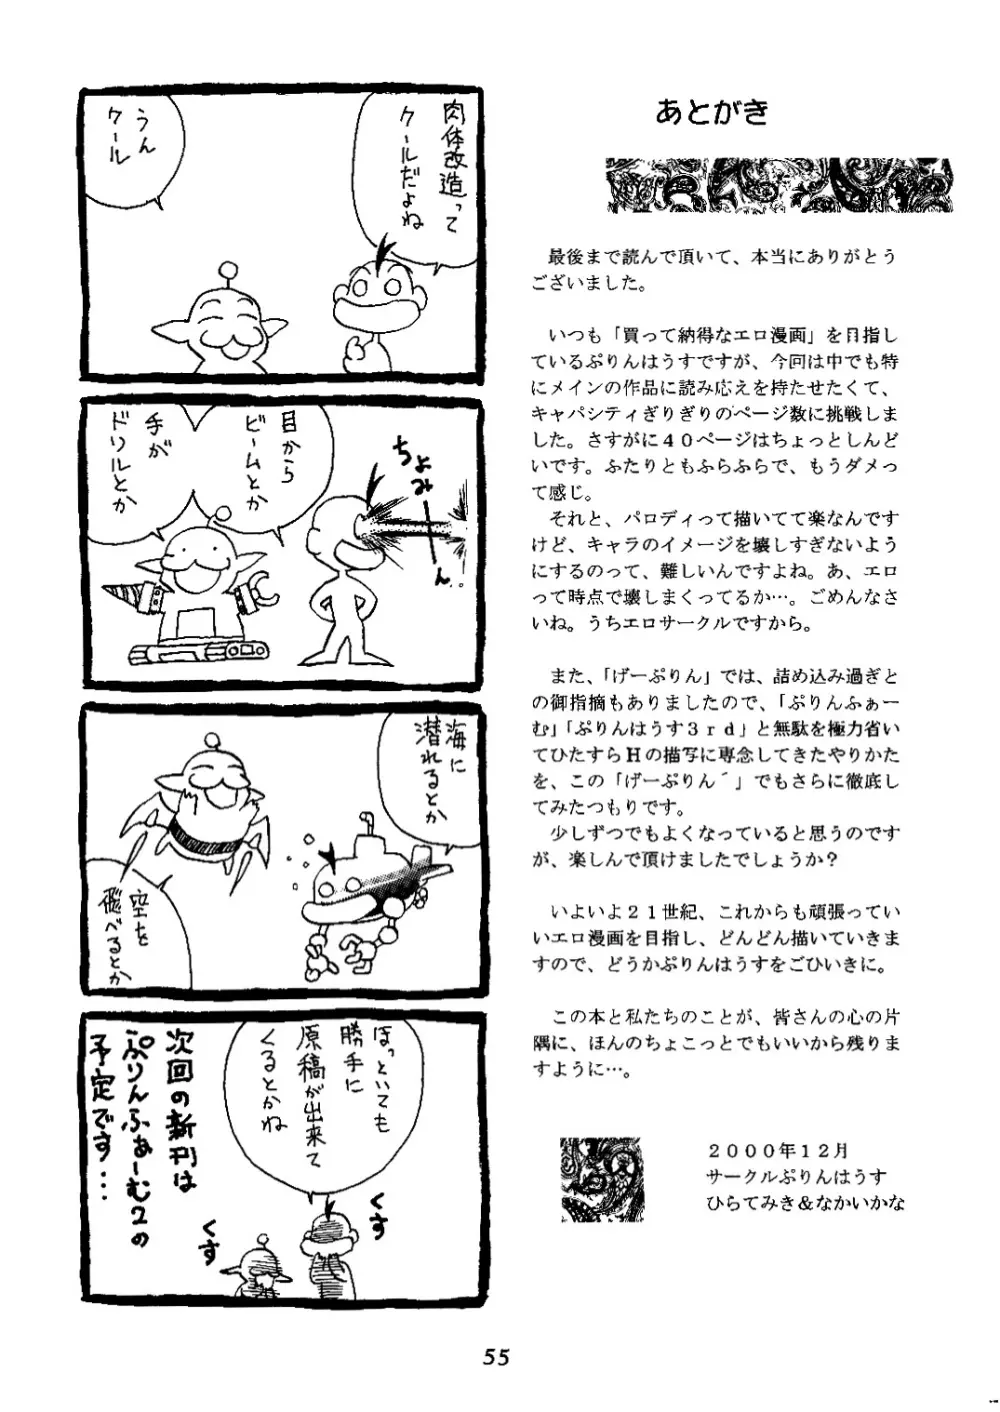 あとがき
最後まで読んで頂いて、本当にありがとう
ございました。
いつも「買って納得なエロ漫画」を目指し
ているぷりんはうすですが、今回は中でも特
にメインの作品に読み応えを持たせたくて、
キャパシティぎりぎりのページ数に挑戦しま
した。さすがに４０ページはちょっとしんど
いです。ふたりともふらふらで、もうダメっ
て感じ。
それと、パロディって描いてて楽なんです
けど、キャラのイメージを壊しすぎないよう
にするのって、難しいんですよね。あ、エロ
って時点で壊しまくってるか…。ごめんなさ
いね。うちエロサークルですから。
また、「げーぷりん」では、詰め込み過ぎと
の御指摘もありましたので、「ぷりんふぁー
む」「ぷりんはうす３ｒｄ」と無駄を極力省い
てひたすらＨの描写に専念してきたやりかた
を、この「げーぷりん゛」でもさらに徹底し
てみたつもりです。
少しずつでもよくなっていると思うのです
が、楽しんで頂けましたでしょうか？
いよいよ２１世紀、これからも頑張ってい
いエロ漫画を目指し、どんどん描いていきま
すので、どうかぷりんはうすをごひいきに。
この本と私たちのことが、皆さんの心の片
隅に、ほんのちょこっとでもいいから残りま
すように…。
２０００年１２月
サークルぷりんはうす
ひらてみき＆なかいかな
肉体改造って
クールだよね
うん
クール
目から
ビームとか
手が
ドリルとか
ちょみーん..
海に
潜れるとか
空を
飛べるとか
ほっといても
勝手に
原稿が出来て
くるとかね
くす
くす
次回の新刊は
ぷりんふぁーむ2の
予定です...
55